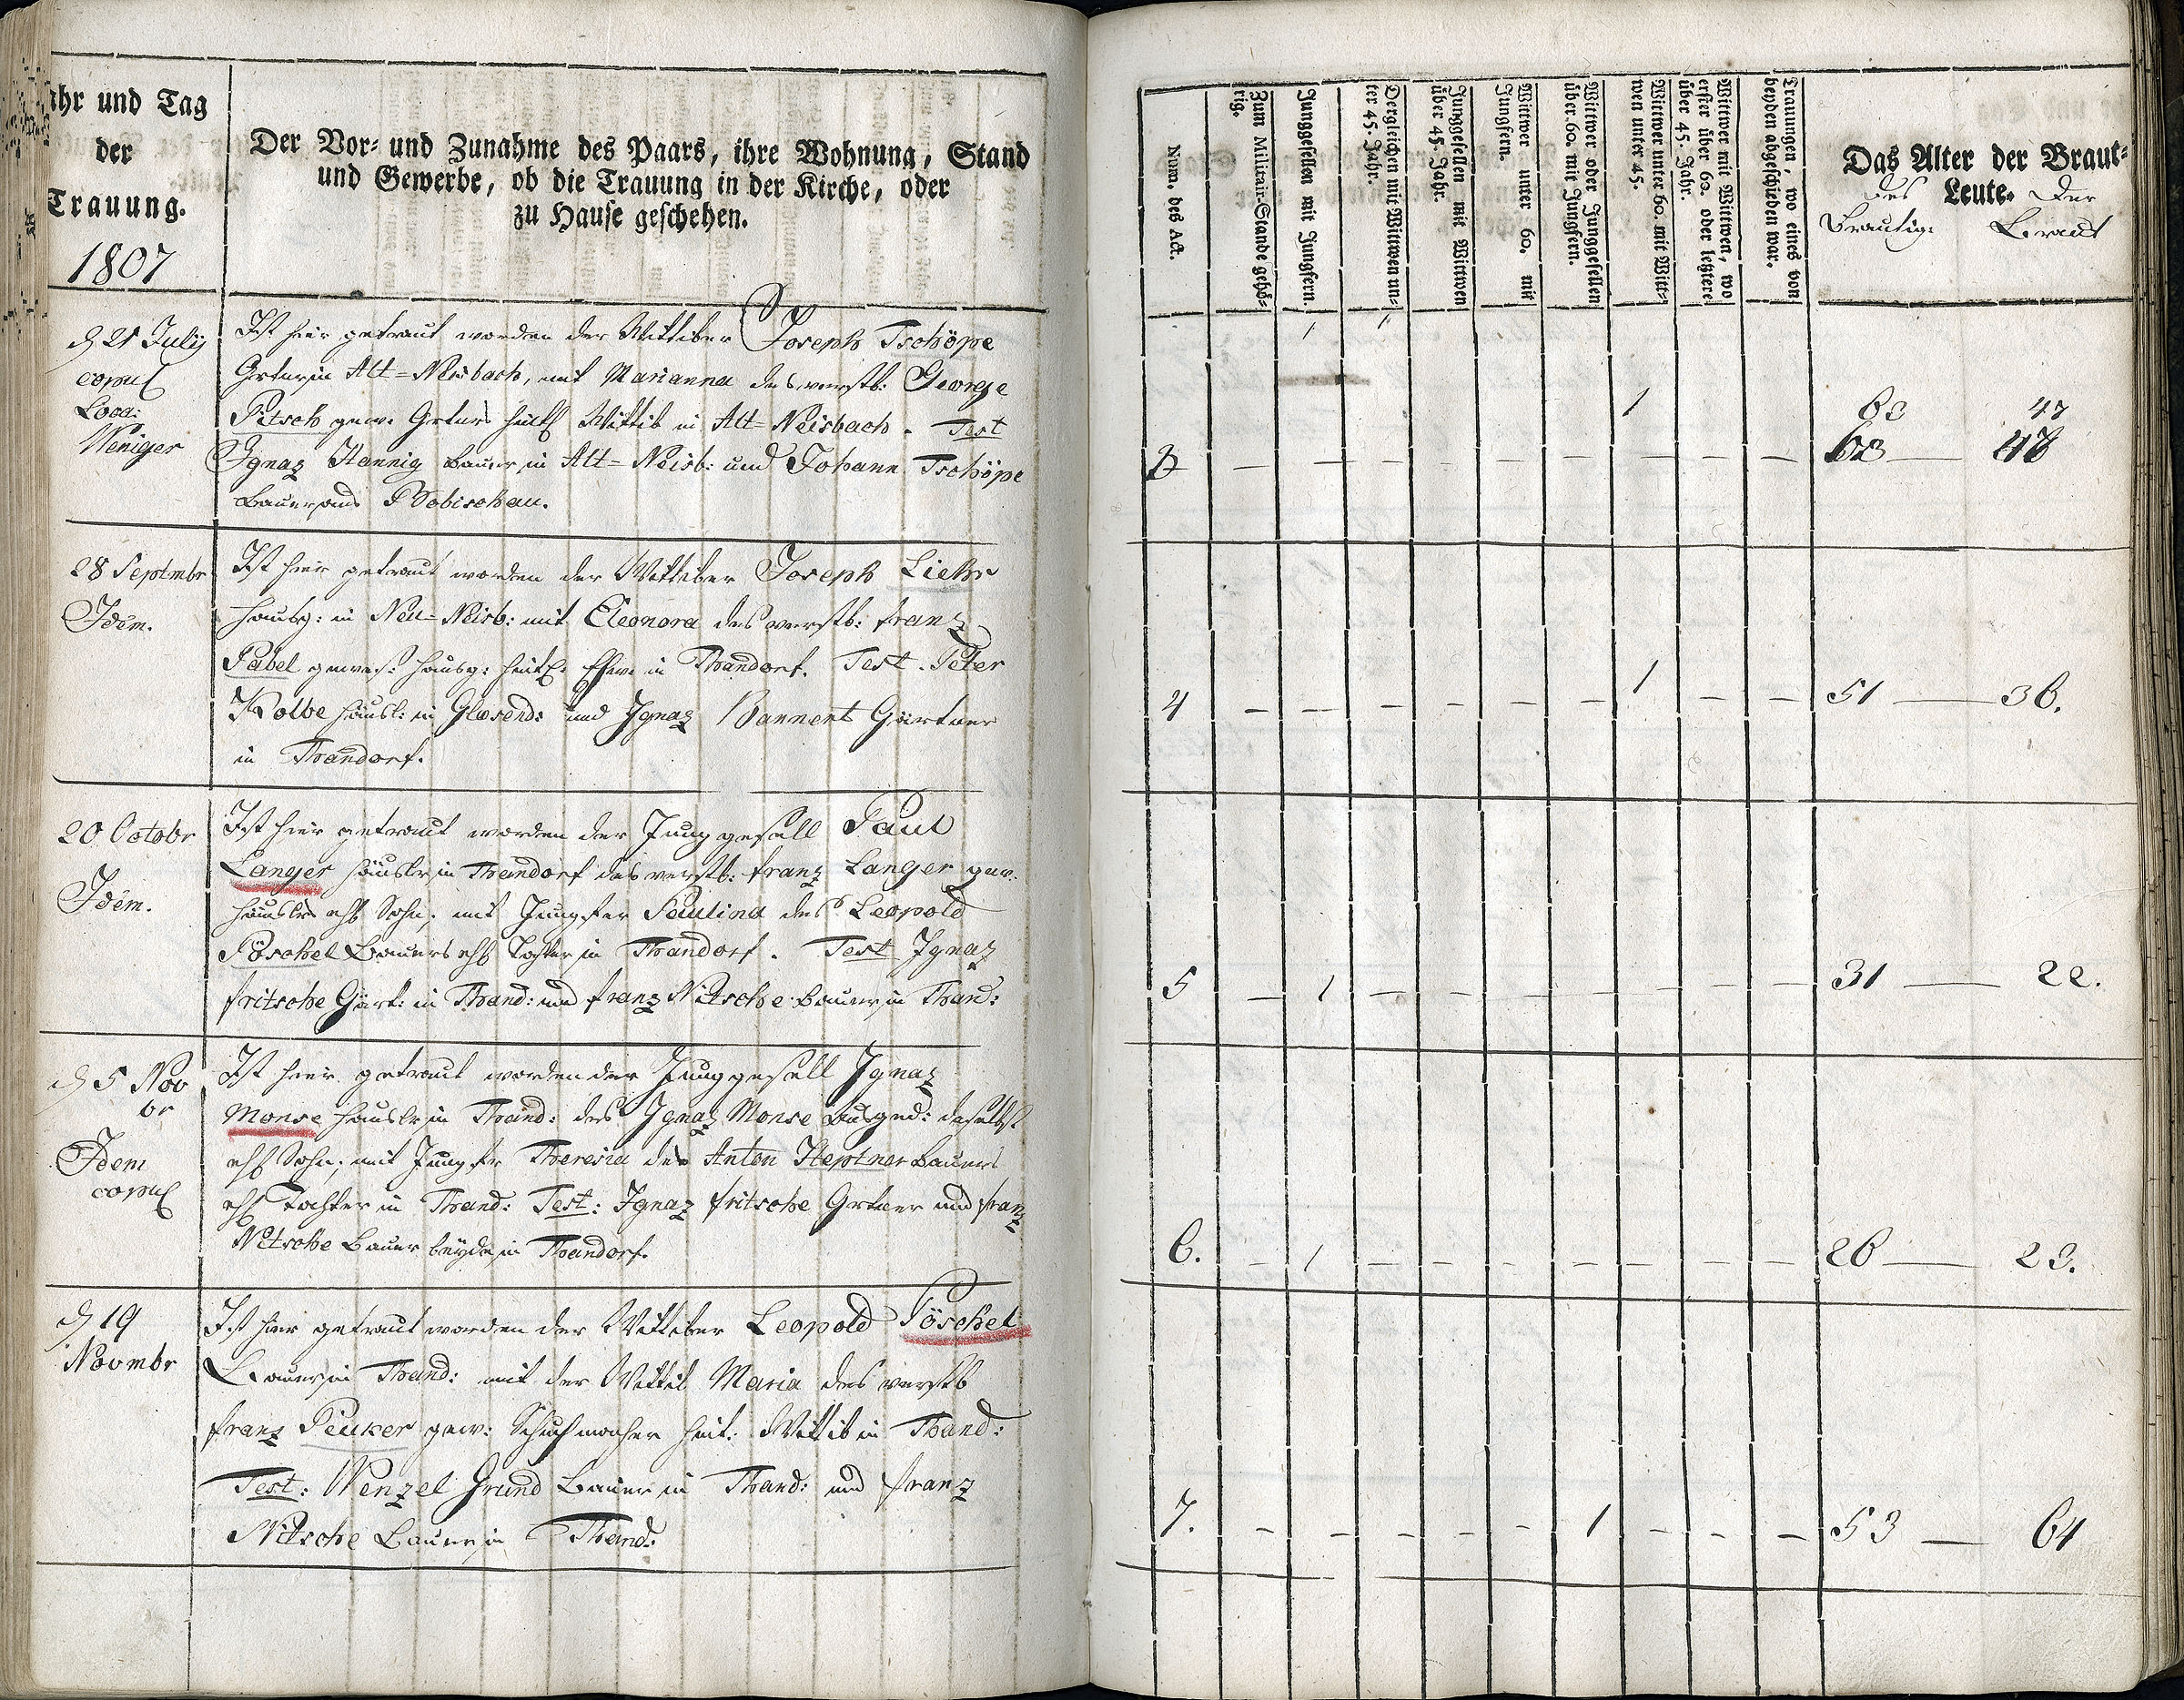 ahr und Tag
der
Trauung.
1807
Der Vor- und Zunahme des Paars, ihre Wohnung, Stand
und Gewerbe, ob die Trauung in der Kirche, oder
zu Hause geschehen.
d 21 July
copul
Loca:
Weniger
Ist hier getraut worden der Wittiber Joseph Tschöpe
in Alt-Neisbach, mit Marianna des verstb: George
Pitsch gew. Wittib in Alt-Neisbach. Test
Ignaz Hannig Bauer in Alt-Neisb: und Johann Tschöpe
Bauer aus Bobischau.
28 Septmbr
Idem.
Ist hier getraut worden der Wittiber Joseph Liehr
Hausg: in Neu-Neisb: mit Eleonora des verstb: Franz
Pabel gewes: Hausg: in Thandorf. Test. Peter
Kolbe Häusl: in Glasend: und Ignaz Bannent Gärtner
in Thandorf.
20 Octobr
Idem.
Ist hier getraut worden der Junggesell Paul
Langer Häusler in Thandorf des verstb: Franz Langer gew.
Häuslers ehl Sohn; mit Jungfer Paulina des Leopold
Pöschel Bauers ehl Tochter in Thandorf. Test Ignaz
Fritsche Gärt: in Thand: und Franz Nitsche Bauer in Thand:
d 5 Nov
br
Idem
copul
Ist hier getraut worden der Junggesell Ignaz
Monse Häusler in Thand: des Ignaz Monse Ausged: daselbst
ehl Sohn; mit Jungfr Theresia des Anton Heptner Bauers
ehl Tochter in Thand: Test: Ignaz Fritsche Grtner und Franz
Nitsche Bauer beyde in Thandorf.
d 19
Novmbr
Ist hier getraut worden der Wittiber Leopold Pöschel
Bauer in Thand: mit der Wittib Maria des verstb
Franz Peuker gew: Schuhmacher hint: Wittib in Thand:
Test: Wenzel Grund Bauer in Thand: und Franz
Nitsche Bauer in Thand:
Num. des Act.
Zum Militair-Stande gehö-
rig.
Junggesellen mit Jungfern.
Dergleichen mit Wittwen un-
ter 45. Jahr.
Junggesellen mit Wittwen
über 45. Jahr.
Wittwer unter 60. mit
Jungfern.
Wittwer oder Junggesellen
über 60. mit Jungfern.
Wittwer unter 60. mit Witt-
wen unter 45.
Wittwer mit Wittwen, wo
erster über 60. oder letztere
über 45. Jahr.
Trauungen, wo eines von
beyden abgeschieden war.
Das Alter der Braut-
Leute.
des
Bräutig:
Der
Braut
1 1
1 63 47
3 – – – – – – – – – 63 — 48
4 – – – – – – 1 – – 51 — 36.
5 – 1 – – – – – – – 31 — 22.
6. – 1 – – – – – – – 26 — 23.
7. – – – – – 1 – – – 53 — 64